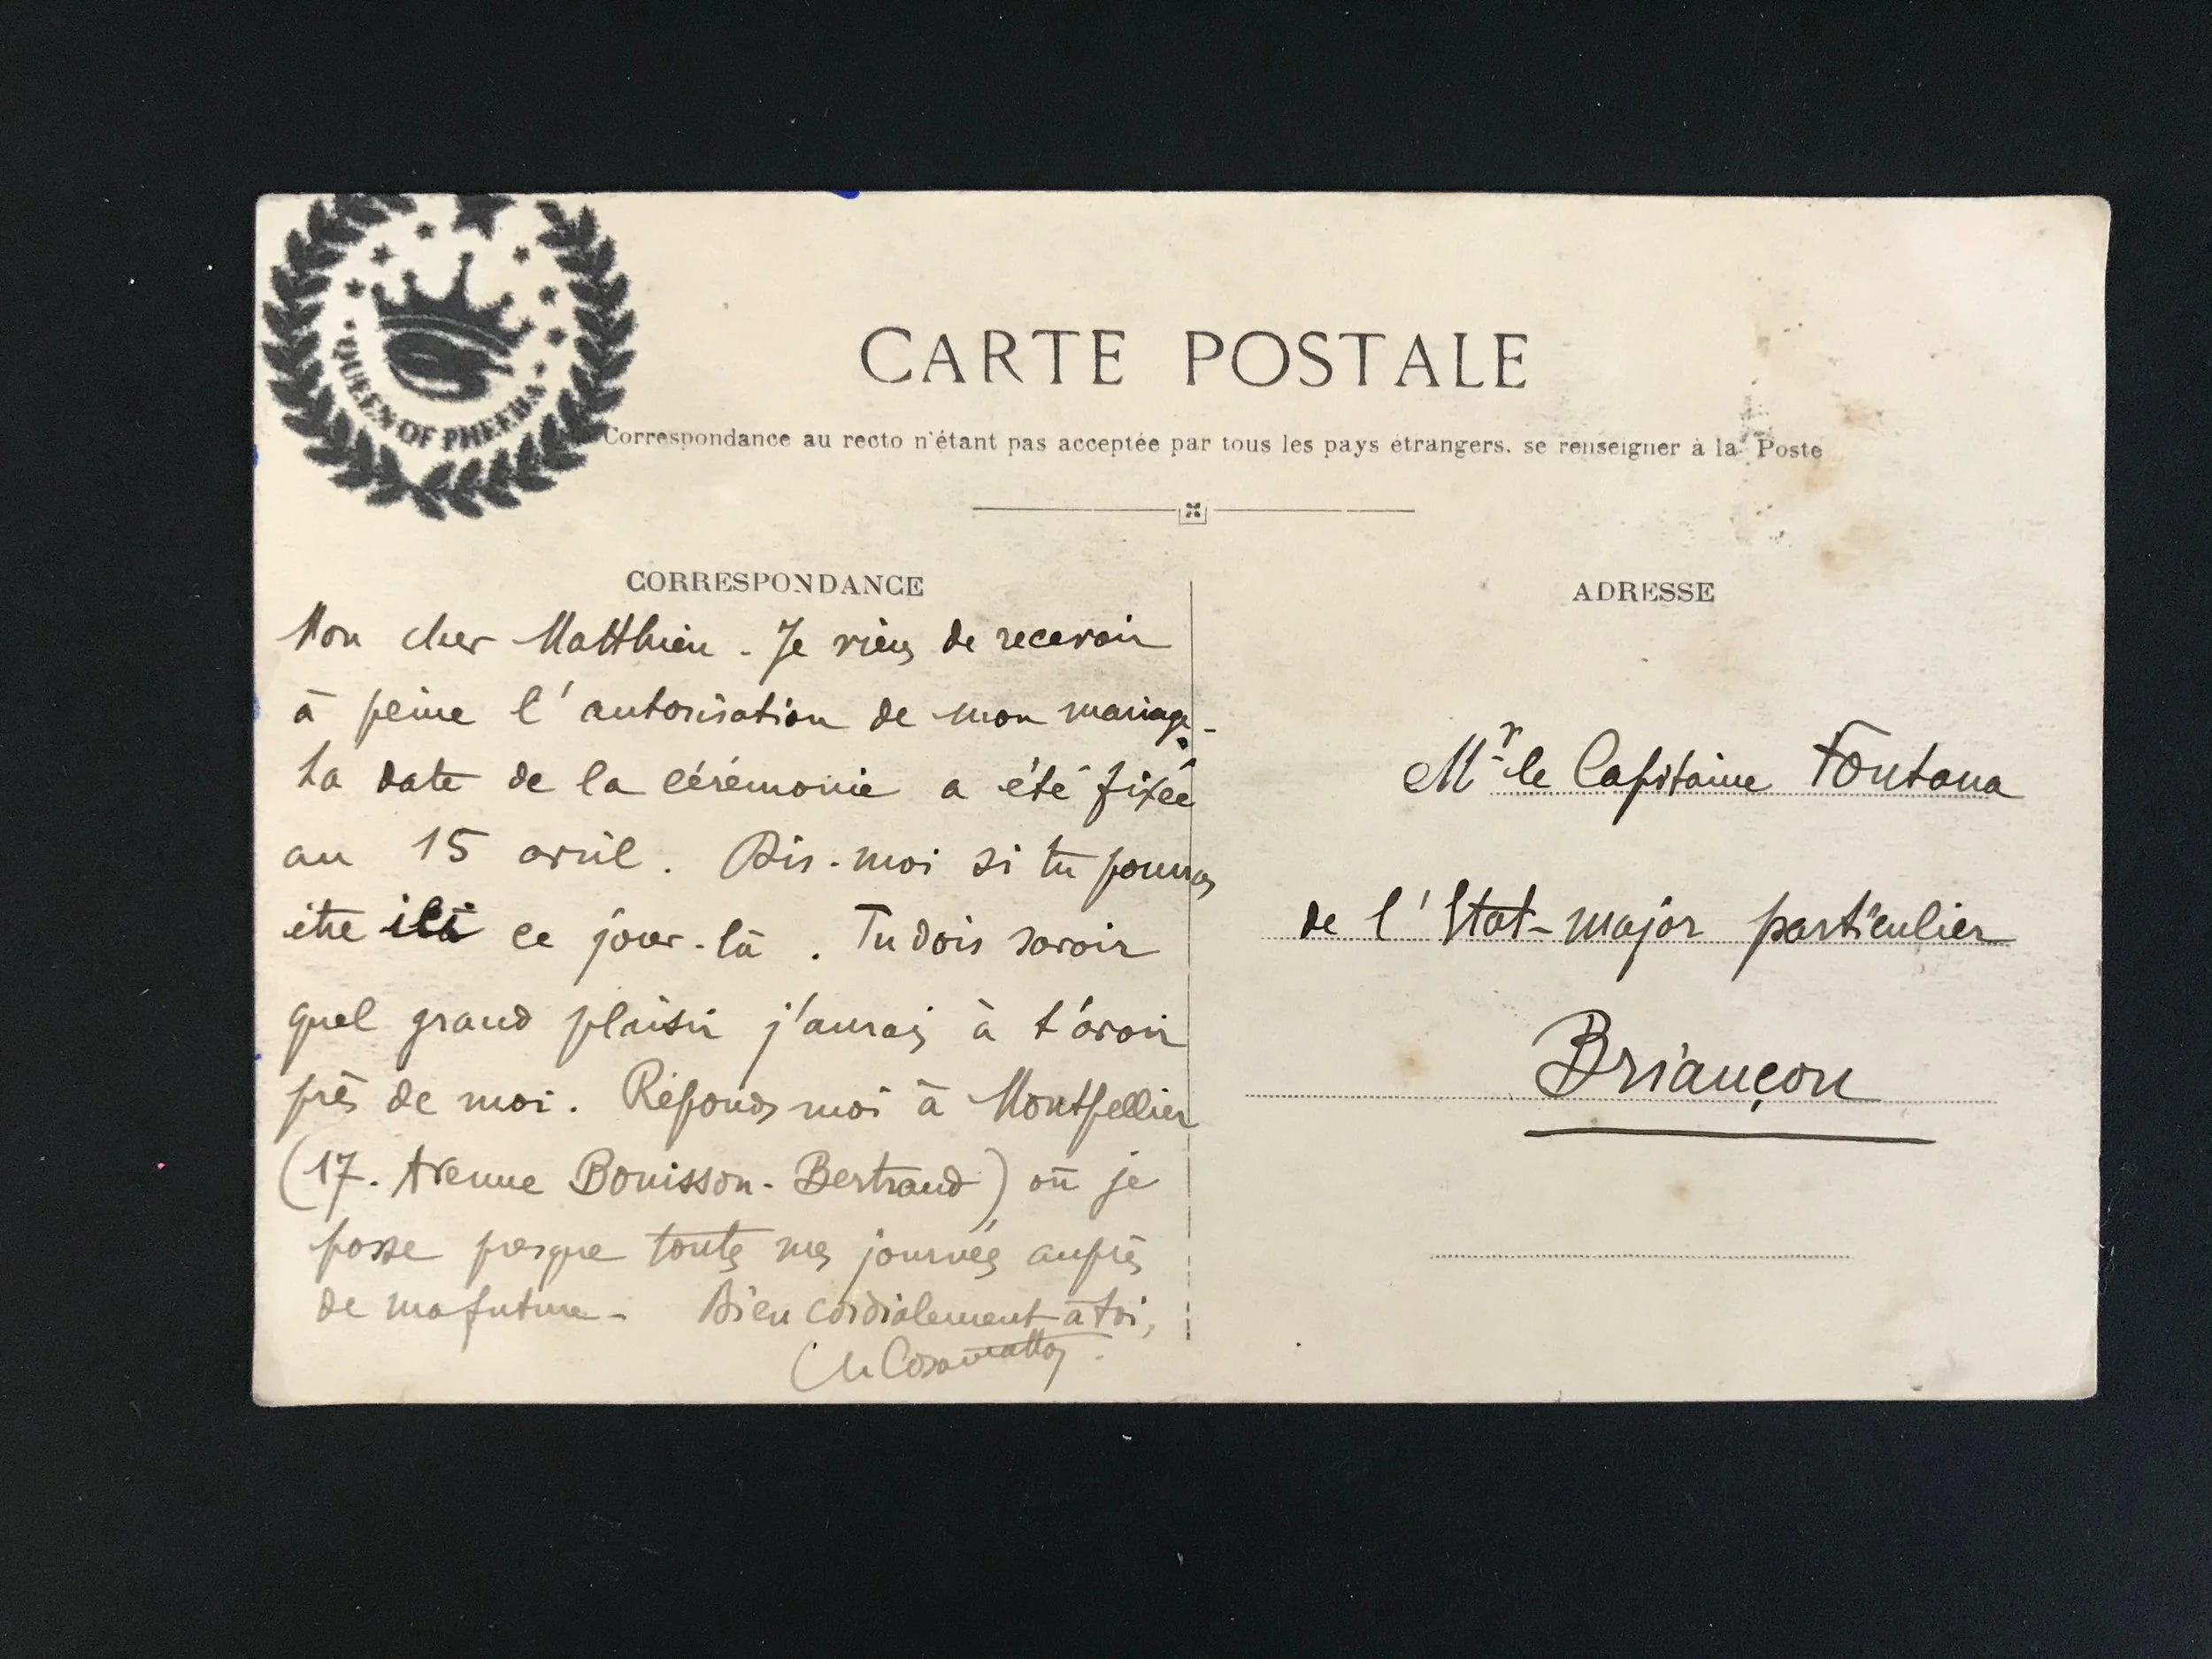 QUEEN OF PHEEBS
CARTE POSTALE
Correspondance au recto n'étant pas acceptée par tous les pays étrangers. se renseigner à la Poste
CORRESPONDANCE
Mon cher Matthieu. Je viens de recevoir
à peine l'autorisation de mon mariage -
La date de la cérémonie a été fixée
au 15 avril. Dis-moi si tu pourras
être ici ce jour-là. Tu dois savoir
quel grand plaisir j'aurais à t'avoir
près de moi. Réponds moi à Montpellier
(17. Avenue Bouisson-Bertrand) où je
passe presque toutes mes journées auprès
de ma future - Bien cordialement à toi,
ADRESSE
Mr le Capitaine Fontana
de l'Etat-major particulier
Briançon